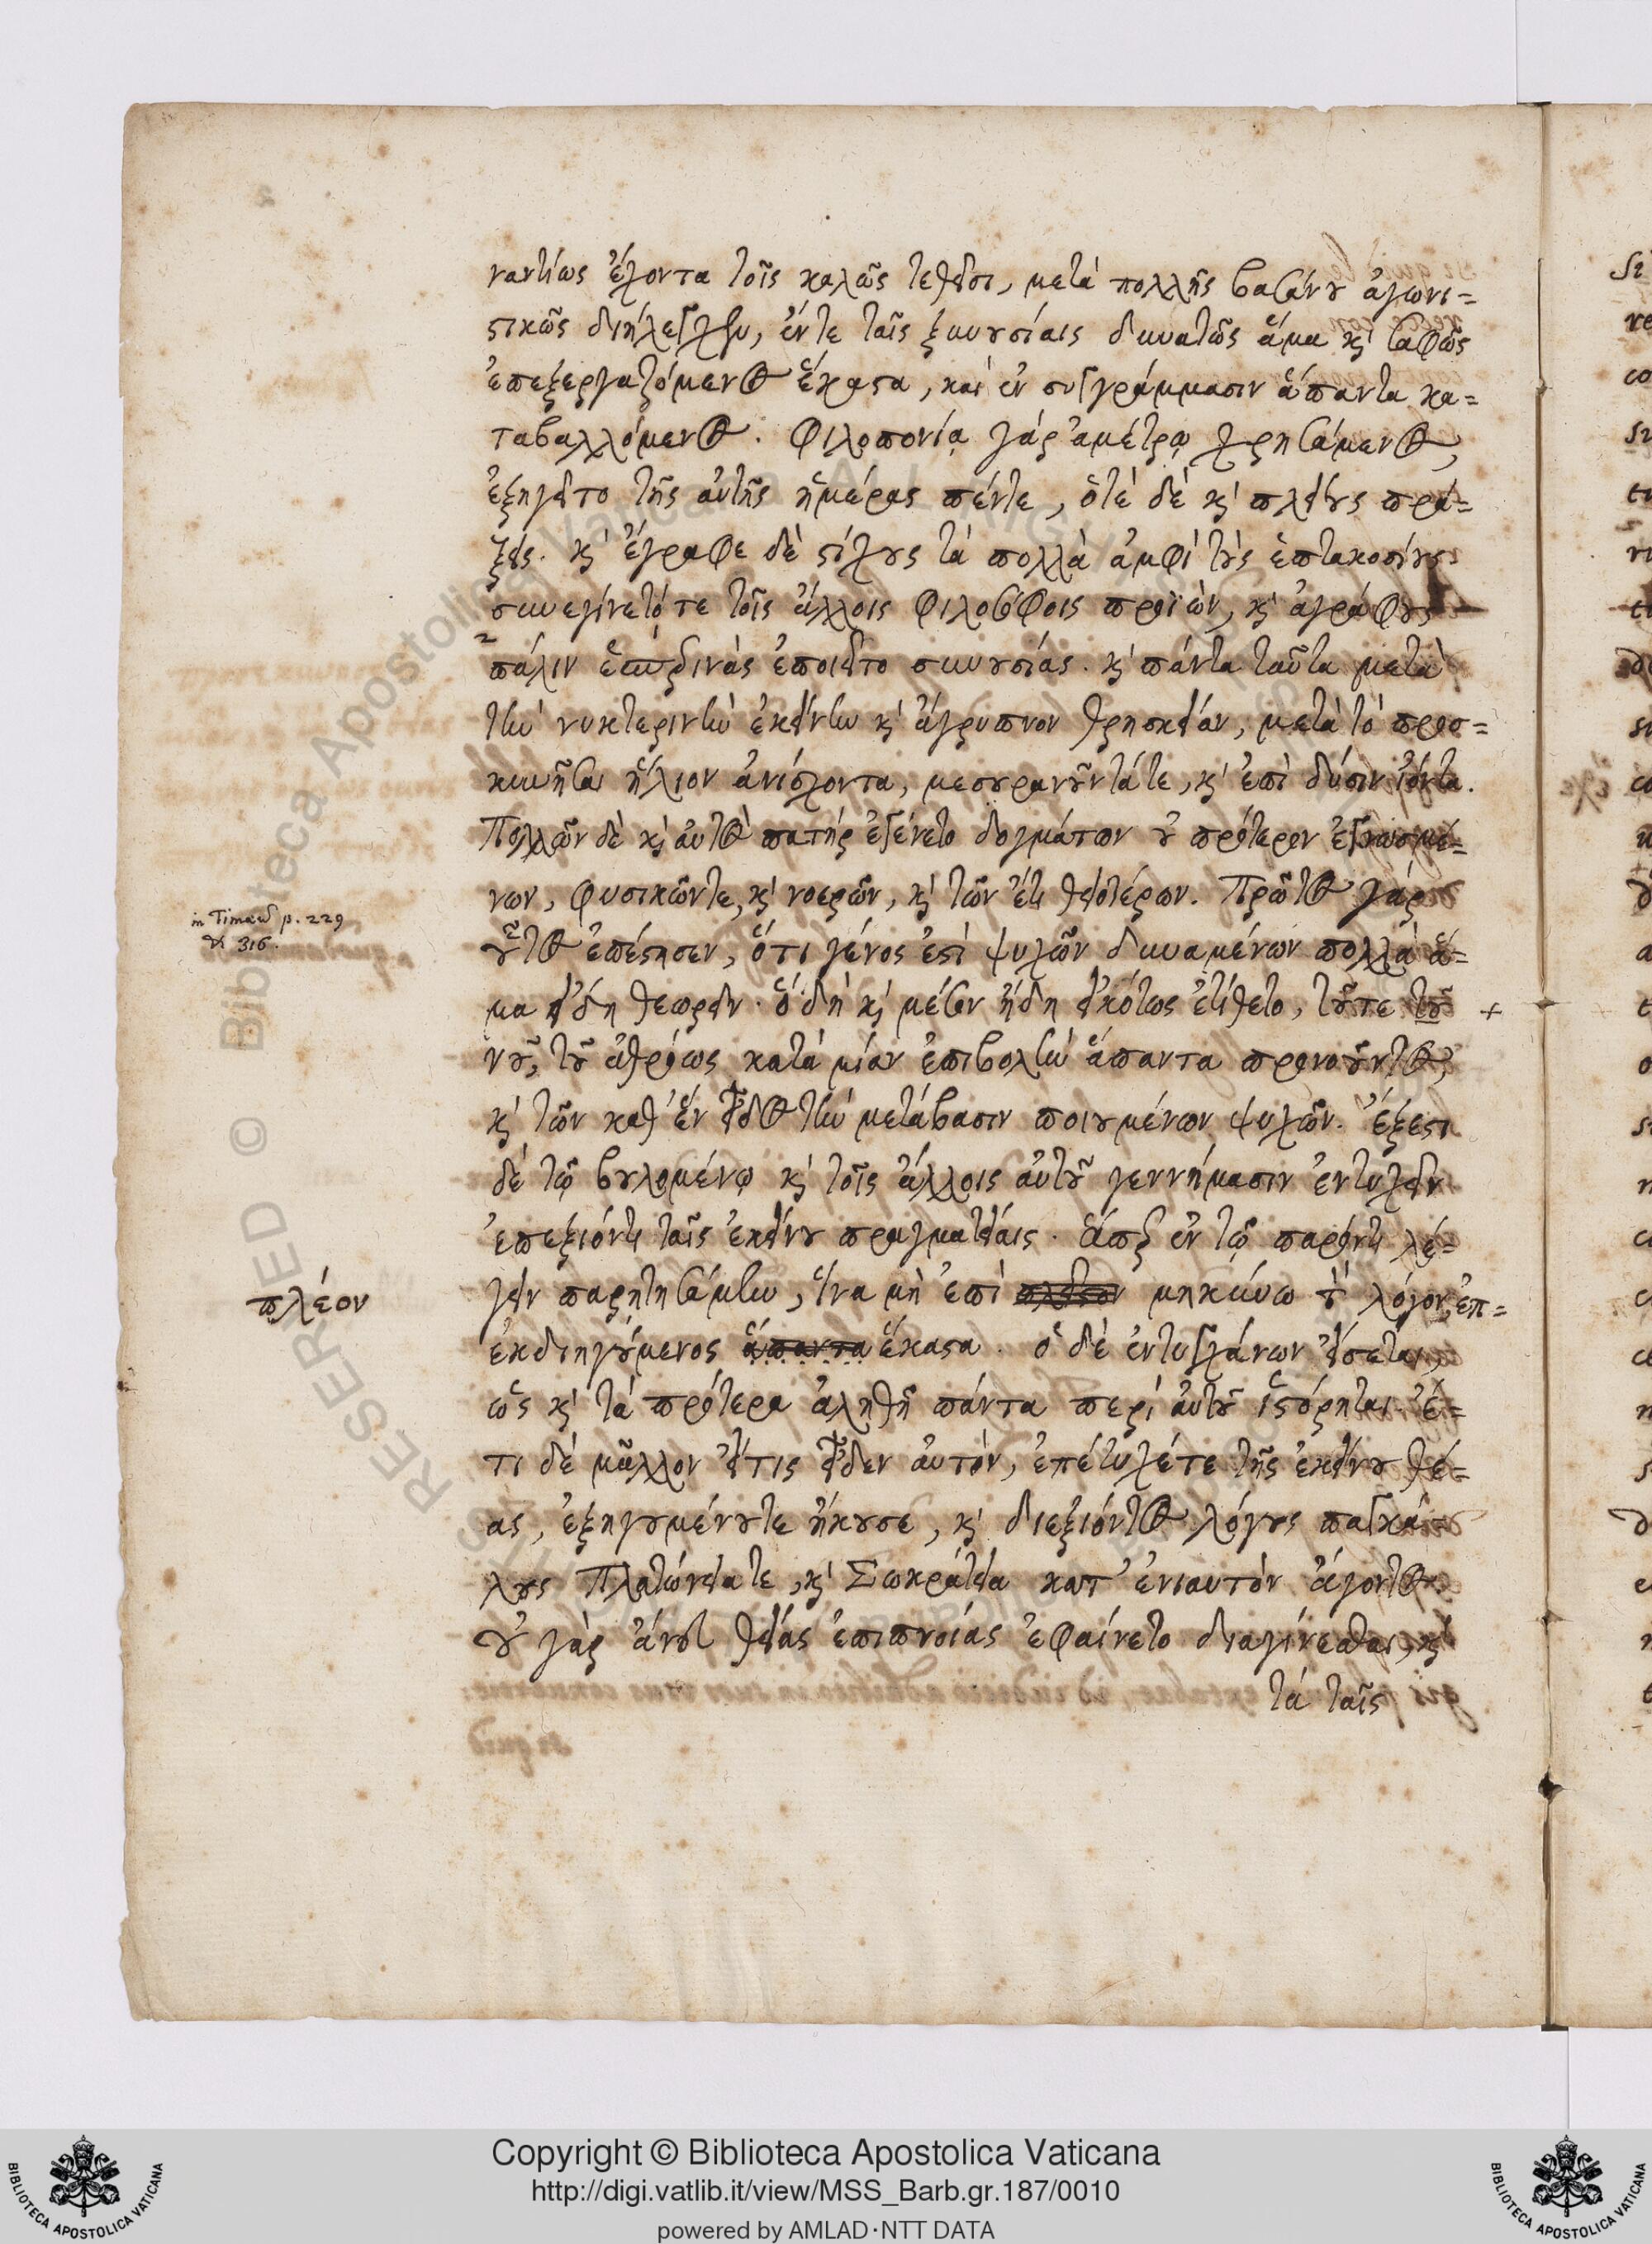 ναντίως ἔχοντα τοῖς καλῶς τεθεῖσι, μετὰ πολλῆς βασάνου ἀγωνι=
στικῶς διήλεγχεν, ἔν τε ταῖς ξυνουσίαις δυνατῶς ἅμα κ̀ σαφῶς
ἐπεξεργαζόμενος ἕκαστα, καὶ ἐν συγγράμμασιν ἅπαντα κα=
ταβαλλόμενος. Φιλοπονίᾳ γὰρ ἀμέτρῳ χρησάμενος,
ἐξηγεῖτο τῆς αὐτῆς ἡμέρας πέντε, ὁτὲ δὲ κ̀ πλείους πρά=
ξεις. κ̀ ἔγραφε δὲ στίχους τὰ πολλὰ ἀμφὶ τοὺς ἑπτακοσίους
συνεγίνετό τε τοῖς ἄλλοις φιλοσόφοις προϊὼν, κ̀ ἀγράφους
πάλιν ἑσπερινὰς ἐποιεῖτο συνουσίας. κ̀ πάντα ταῦτα μετὰ
τὴν νυκτερινὴν ἐκείνην κ̀ ἄγρυπνον θρησκείαν, μετὰ τὸ προσ=
κυνῆσαι ἥλιον ἀνίσχοντα, μεσουρανοῦντά τε, κ̀ ἐπὶ δύσιν ἰόντα.
Πολλῶν δὲ κ̀ αὐτὸς πατὴρ ἐγένετο δογμάτων οὐ πρότερον ἐγνωσμέ=
νων, φυσικῶν τε, κ̀ νοερῶν, κ̀ τῶν ἔτι θειοτέρων. Πρῶτος γὰρ
οὗτος ἐπέστησεν, ὅτι γένος ἐστὶ ψυχῶν δυναμένων πολλὰ ἅ=
μα εἴδη θεωρεῖν. ὃ δὴ κ̀ μέσον ἤδη εἰκότως ἐτίθετο, τοῦ τε τοῦ +
νοῦ, τοῦ ἀθρόως κατὰ μίαν ἐπιβολὴν ἅπαντα προνοοῦντος,
κ̀ τῶν καθ' ἓν εἶδος τὴν μετάβασιν ποιουμένων ψυχῶν. Ἔξεστι
δὲ τῷ βουλομένῳ κ̀ τοῖς ἄλλοις αὐτοῦ γεννήμασιν ἐντυχεῖν
ἐπεξιόντι ταῖς ἐκείνου πραγματείαις. ἅπερ ἐν τῷ παρόντι λέ=
γειν παρῃτησάμην, ἵνα μὴ ἐπὶ πλεῖον μηκύνω τὸν λόγον, ἐπ=
ἐκδιηγούμενος ἅπαντα ἕκαστα. ὁ δὲ ἐντυγχάνων εἴσεται,
ὡς κ̀ τὰ πρότερα ἀληθῆ πάντα περὶ αὐτοῦ ἱστόρηται. ἔ=
τι δὲ μᾶλλον εἴτις εἶδεν αὐτὸν, ἐπέτυχέ τε τῆς ἐκείνου θέ=
ας, ἐξηγουμένου τε ἤκουσε, κ̀ διεξιόντος λόγους παγκά=
λους Πλατώνειά τε, κ̀ Σωκράτεια κατ' ἐνιαυτὸν ἄγοντος.
οὐ γὰρ ἄνευ θείας ἐπιπνοίας ἐφαίνετο διαγίνεσθαι, κ̀
τὰ ταῖς
in Timaeo p. 229
et 316.
πλέον
Copyright © Biblioteca Apostolica Vaticana
http://digi.vatlib.it/view/MSS_Barb.gr.187/0010
powered by AMLAD·NTT DATA
BIBLIOTECA APOSTOLICA VATICANA
BIBLIOTECA APOSTOLICA VATICANA